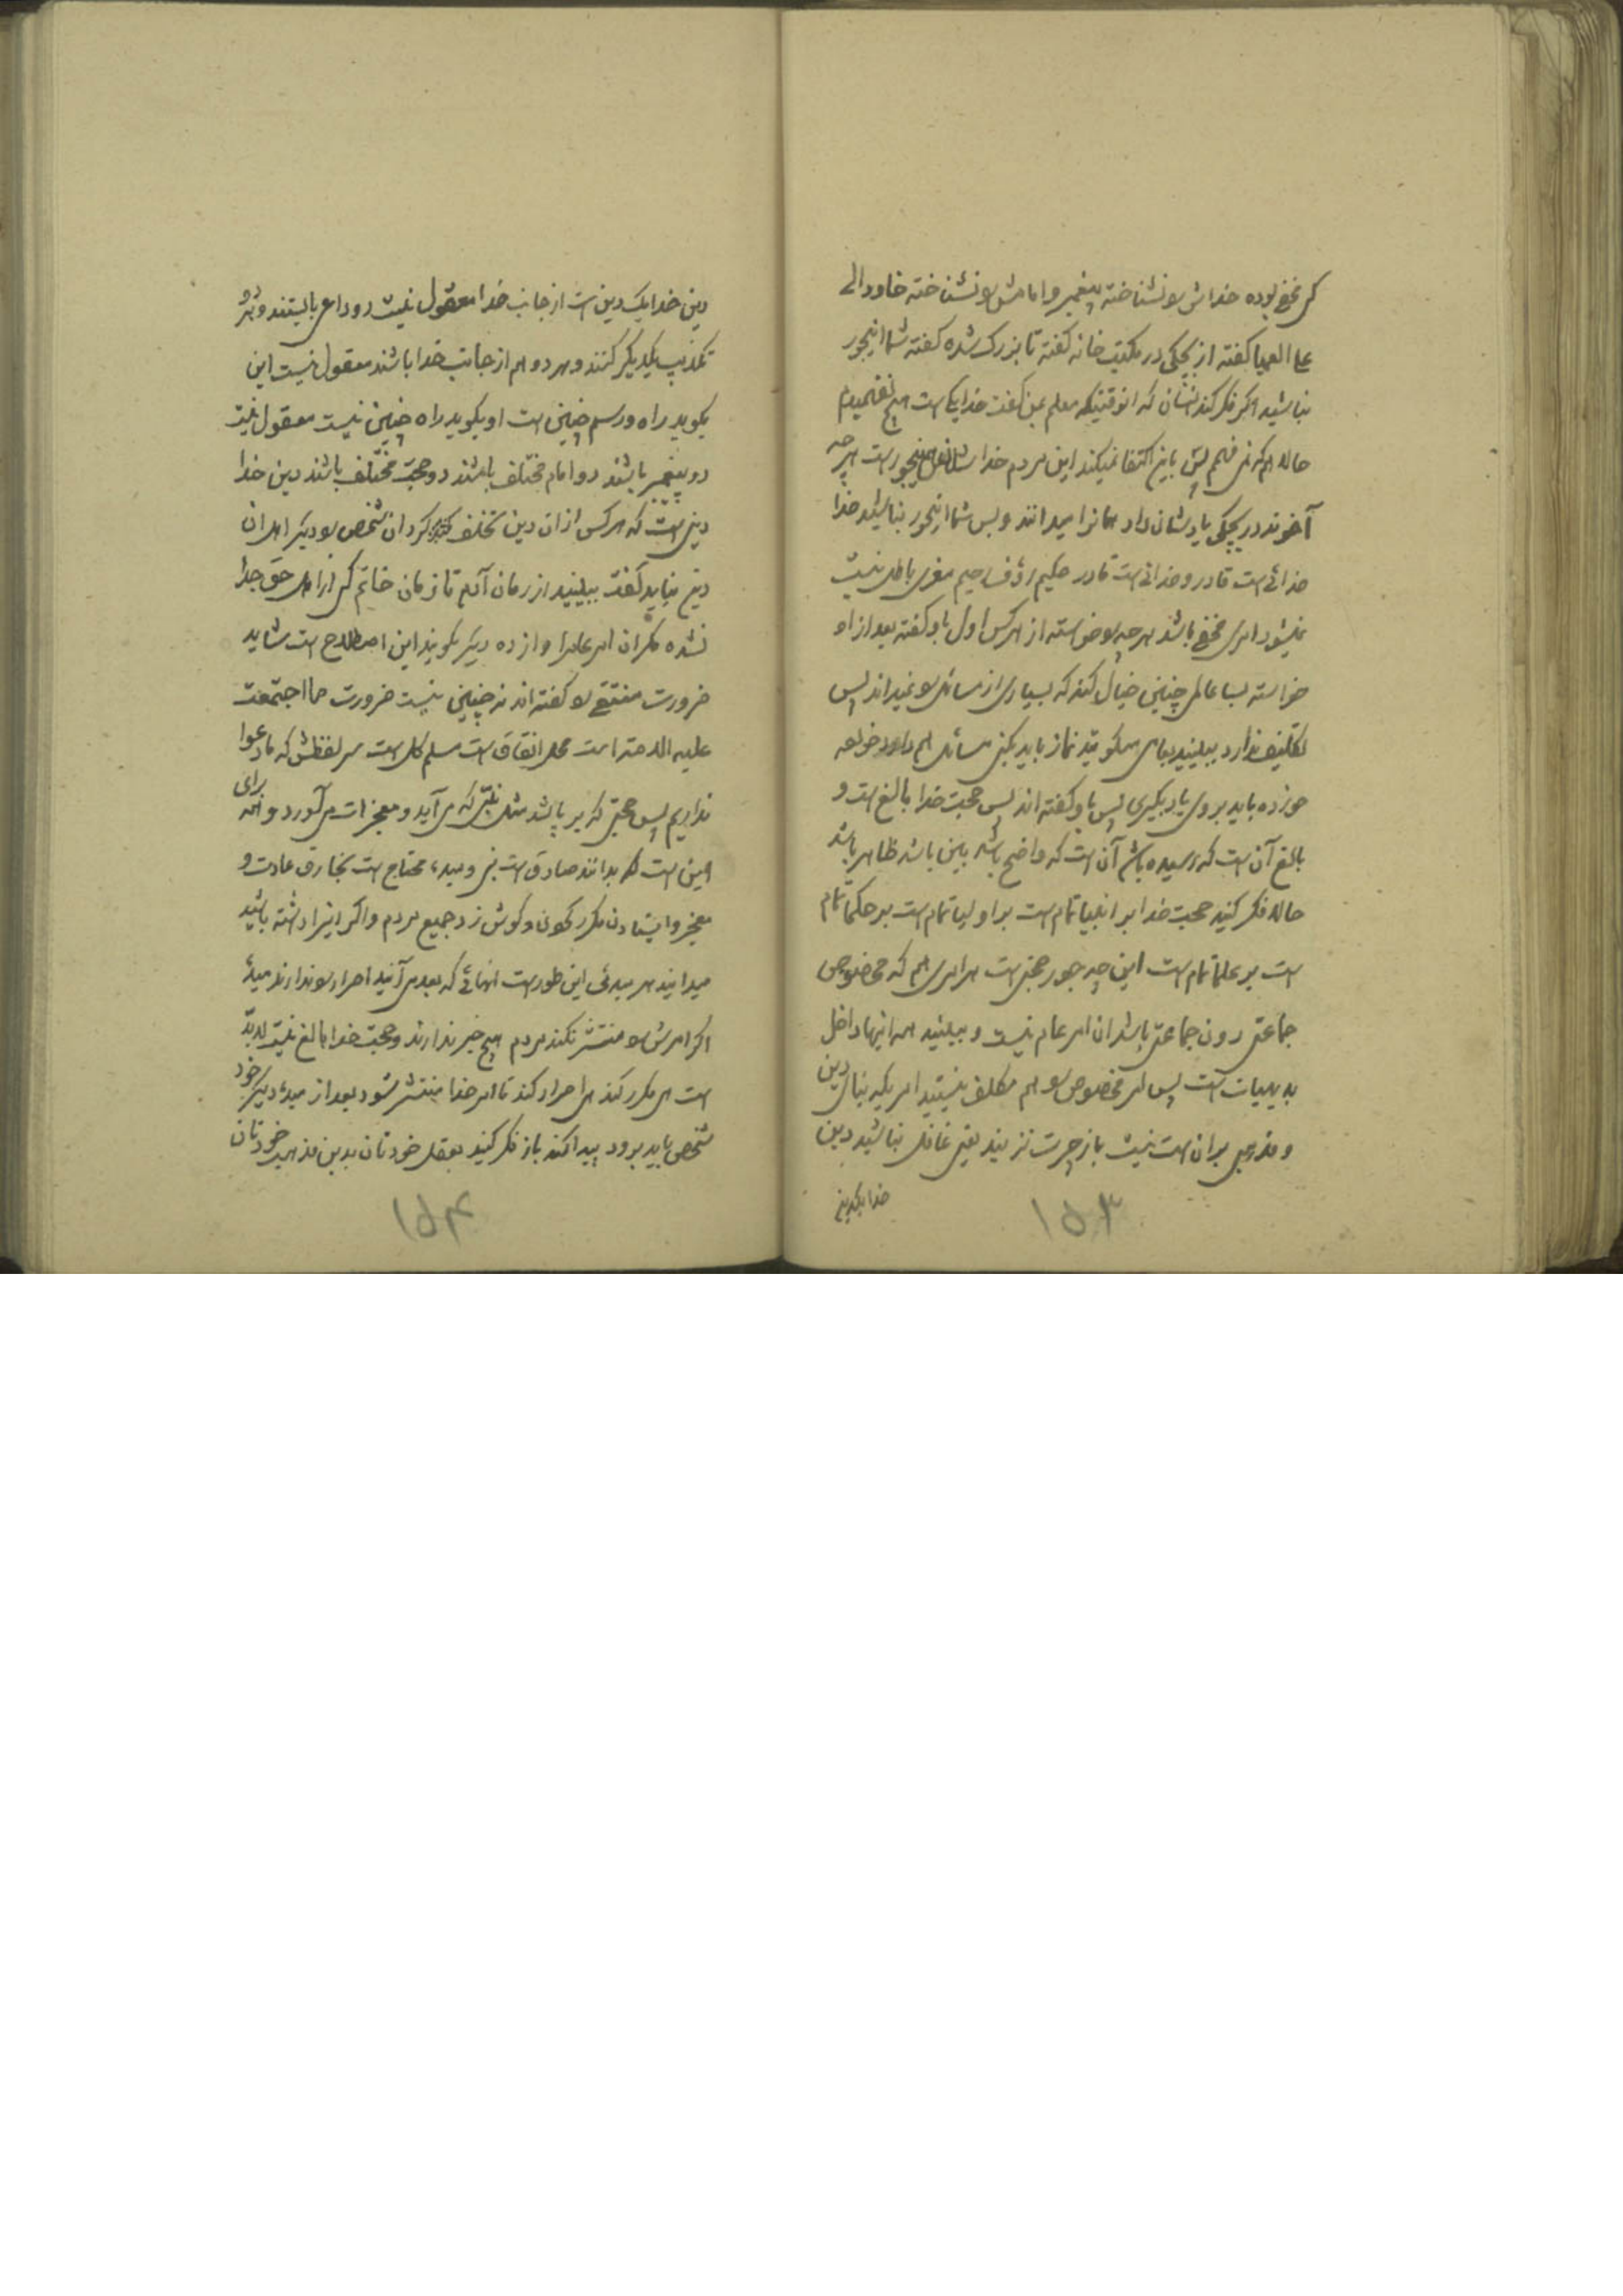 کی مخفی بوده خداش بو نشناخته پیغمبر و امامش بو نشناخته
علی العمیا گفته از بچکی در مکتب خانه گفته تا بزرک شده گفته شما اینجور
نباشید اکر فکر کند انسان که انوقتیکه معلم بمن گفت خدا یکی است هیچ نفهمیدم
حالا هم که نمی فهمم پس باین اکتفا نمیکند این مردم خدا اینجور است هر چه
آخوند در بچکی یادشان داد همانرا میدانند و بس شما اینجور نباشید خدا
خدائی است قادر و خدائی است قادر حکیم رؤف رحیم مغری باطل نیست
نمیشود امری مخفی باشد هر چه بو خواسته از هر کس اول باو گفته بعد از او
خواسته بسا عالمی چنین خیال کند که بسیاری از مسائل بو نمیداند پس
تکلیف ندارد ببینید بمای میگویند نماز باید بکنی مسائل هم دارد خواه
باید بروی یاد بگیری پس باو گفته اند پس حجت خدا بالغ است و
بالغ آن است که رسیده باشد آن است که واضح باشد بین باشد ظاهر باشد
حالا فکر کنید حجت خدا بر انبیا تمام است بر اولیا تمام است بر حکما تمام
است بر علما تمام است این چه جور حجتی است هر امری هم که مخصوص
جماعتی دون جماعتی باشد ان امر عام نیست و ببینید همه اینها داخل
بدیهیات است پس امر مخصوص بو هم مکلف نیستید امریکه بنای دین
و مذهبی بر ان است نیست باز چرت نزنید یعنی غافل نباشید دین
خدا یکدینی
۱۵۳
دین خدا یک دین است از جانب خدا معقول نیست دو داعی بایستند و هر دو
تکذیب یکدیگر کنند و هر دو هم از جانب خدا باشند معقول نیست این
بگوید راه و رسم چنین است او بگوید راه چنین نیست معقول نیست
دو پیغمبر باشند دو امام مختلف باشند دو حجت مختلف باشند دین خدا
دینی است که هر کس از ان دین تخلف کرد ان شخص بو دیگر اهل ان
دین نباید گفت ببینید از زمان آدم تا زمان خاتم کی از اهل حق جدا
نشده مکر ان امر عامرا و از ده دیگر بگویند این اصطلاح است شاید
ضرورت منتفی بو گفته اند نه چنین نیست ضرورت ما اجتمعت
علیه الامه است محل اتفاق است مسلم کل است سر لفظش که ما دعوا
نداریم پس حجتی که بر پا شد مثل نبی که می آید و معجزات می آورد و همه برای
همین است که بدانند صادق است نبی و مبدء محتاج است بخارق عادت و
معجز و ایستادن مکرر گفتن و گوش زد جمیع مردم و اکر اینرا داشته باشید
میدانید هر مبدئی این طور است انهائی که بعد می آیند اصرار بو ندارند مبدء
اکر امرش بو منتشر نکند مردم هیچ خبر ندارند و حجت خدا بالغ نیست لابد
است هی مکرر کند هی اصرار کند تا امر خدا منتشر شود بعد از مبدء دیگر خود
شخص باید برود پیدا کند باز فکر کنید بعقل خودتان بدین مذهب خودتان
۱۵۴